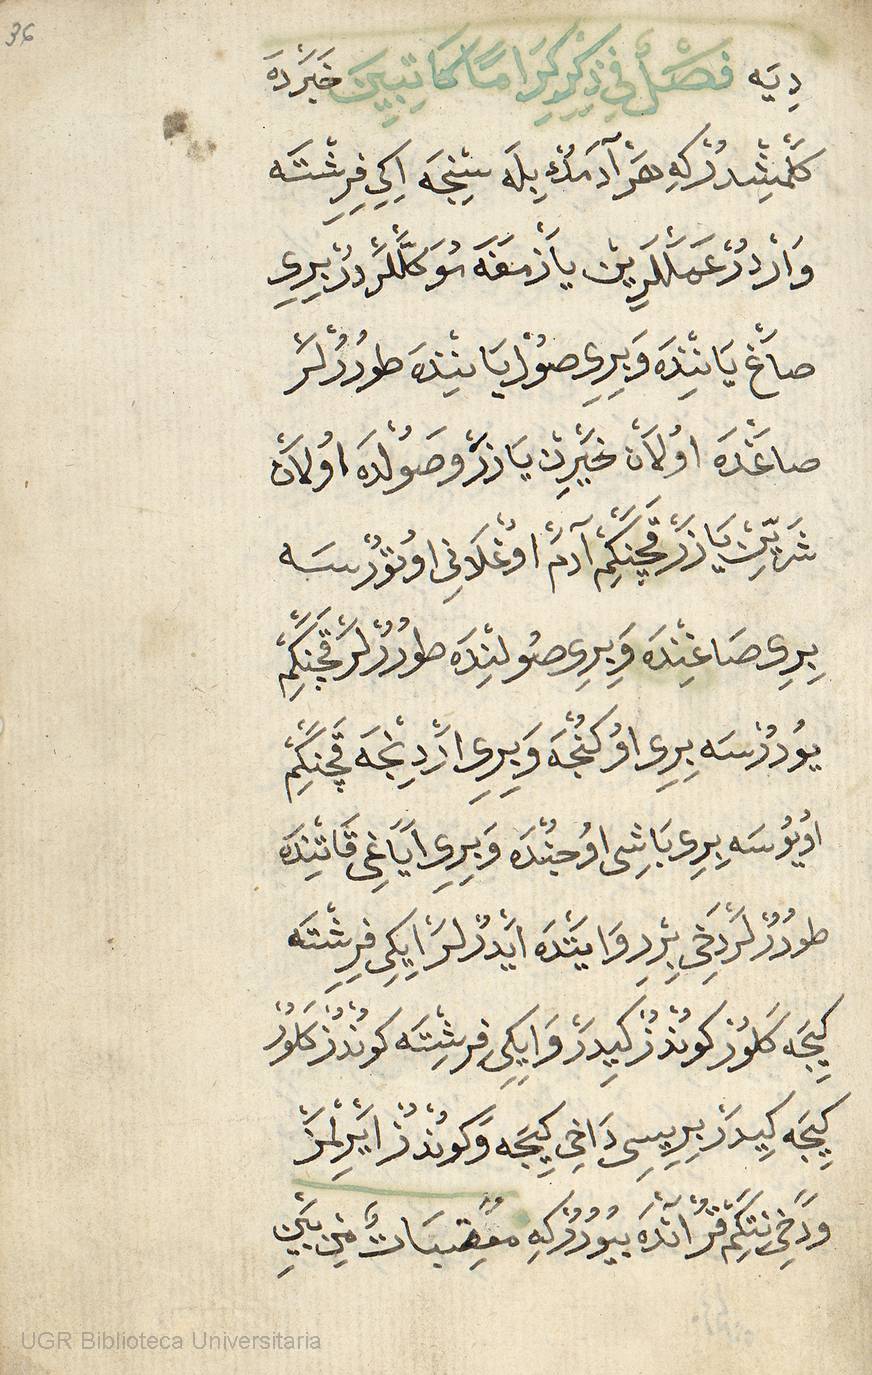 36
دِيَه فَصْلٌ فِي ذِكْرِ كِرَامًا كَاتِبِينَ خَبَرْدَه
كَلْمِشْدُرْ كِه هَرْ آدَمُكْ بِلَه سِنْجَه اِكِي فِرِشْتَه
وَارْدُرْ عَمَلْلَرِينْ يَازْمَغَه مُوَكَّلْلَرْدُرْ بِرِي
صَاغْ يَانِنْدَه وَبِرِي صُولْ يَانِنْدَه طُورُرْلَرْ
صَاغَنْدَه اوُلَانْ خَيْرِنْ يَازَرْ وَصُولْدَه اوُلَانْ
شَرِّينْ يَازَرْ قَچَنْكِمْ آدَمْ اوُغْلَانِي اوُتُوْرْسَه
بِرِي صَاغِنْدَه وَبِرِي صُولِنْدَه طُورُرْلَرْ قَچَنْكِمْ
يُورُرْسَه بِرِي اوُكُنْجَه وَبِرِي ارْدِنْجَه قَچَنْكِمْ
اوُيُوسَه بِرِي بَاشِي اوُجُنْدَه وَبِرِي ايَاغِي قَاتِنْدَه
طُورُرْلَرْ دَخِي بِرْ رِوَايَتْدَه ايْدُرْلَرْ ايِكِي فِرِشْتَه
كِيجَه كَلُورْ كُونْدُزْ كِيدَرْ وَايِكِي فِرِشْتَه كُونْدُزْ كَلُورْ
كِيجَه كِيدَرْ بِرِيسِي دَاخِي كِيجَه وَكُونْدُزْ ايْرِلْمَزْ
وَدَخِي نِتَكِمْ قُرْآنْدَه بُيُورُرْ كِه مُعَقِّبَاتٌ مِنْ بَيْنِ
UGR Biblioteca Universitaria